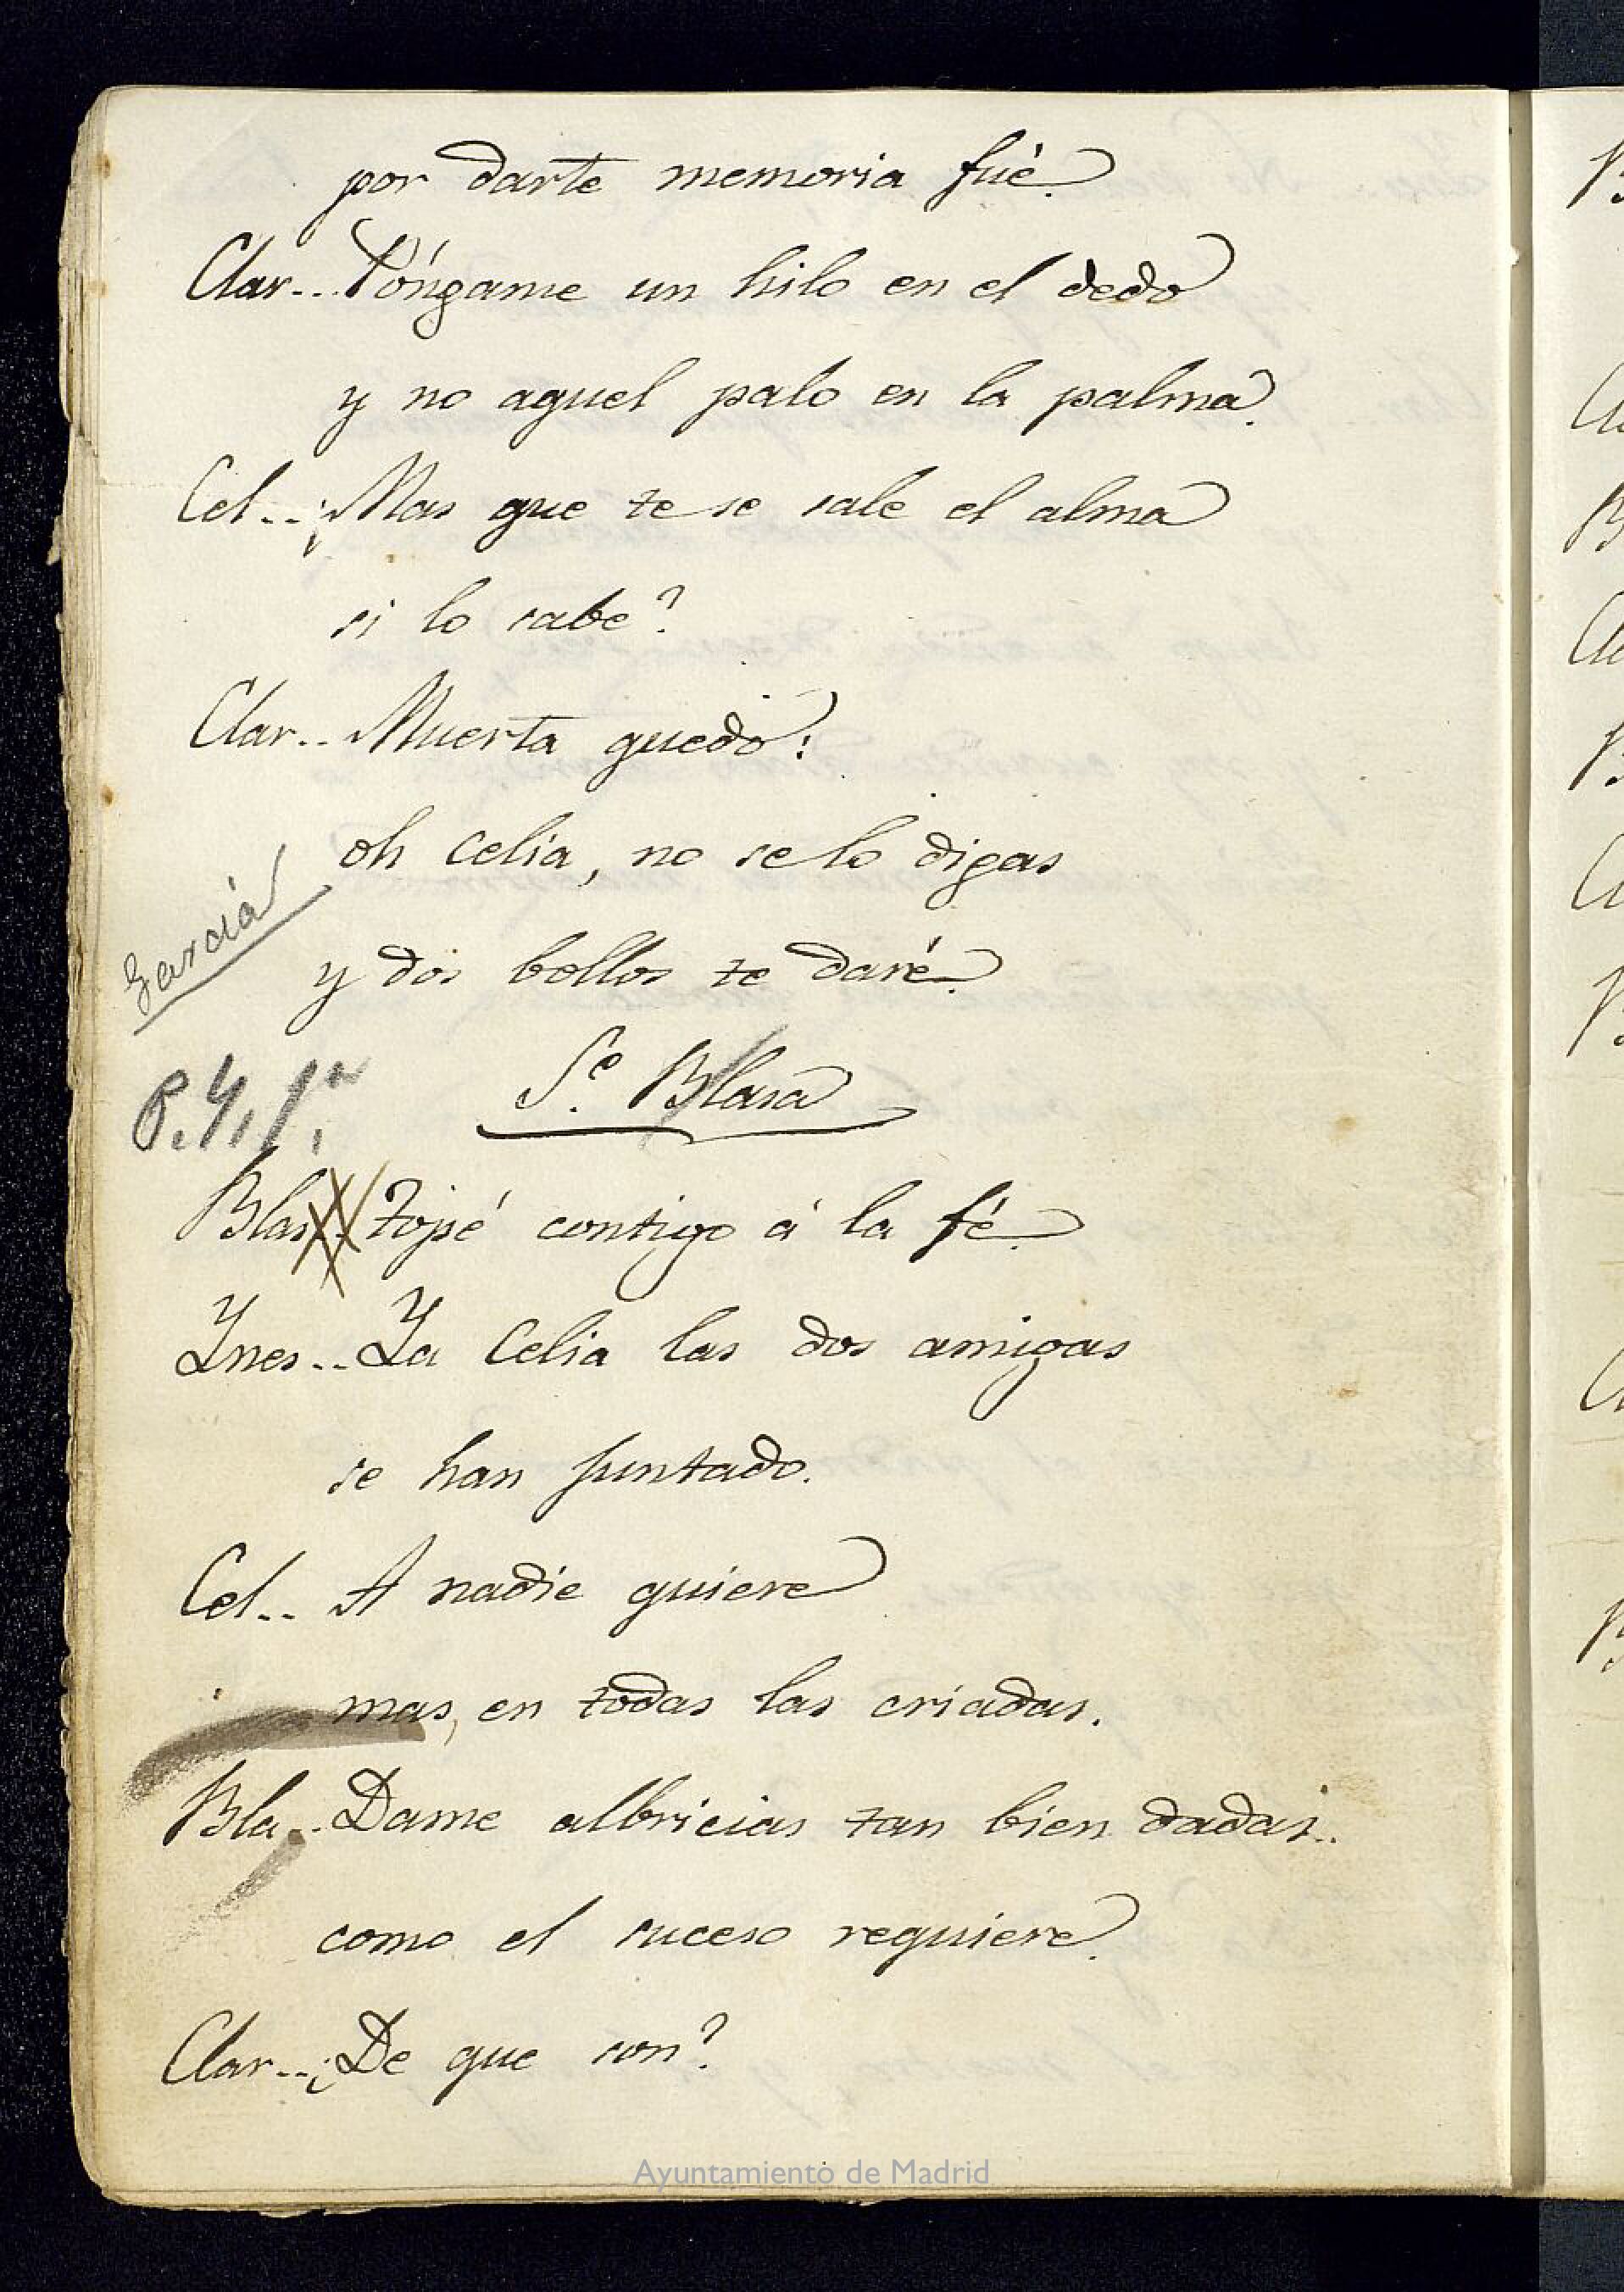 por darte memoria fué.
Clar.. Póngame un hilo en el dedo
y no aquel palo en la palma.
Cel.. ¿Mas que te se sale el alma
si lo sabe?
Clar.. Muerta quedo!
oh Celia, no se lo digas
y dos bollos te daré.
García
Se. Blasa
P. Y. 1ª
Blas.. Topé contigo á la fé.
Ynes.. Ya Celia las dos amigas
se han juntado.
Cel.. A nadie quiere
mas, en todas las criadas.
Bla.. Dame albricias tan bien dadas..
como el suceso requiere.
Clar.. ¿De que son?
Ayuntamiento de Madrid